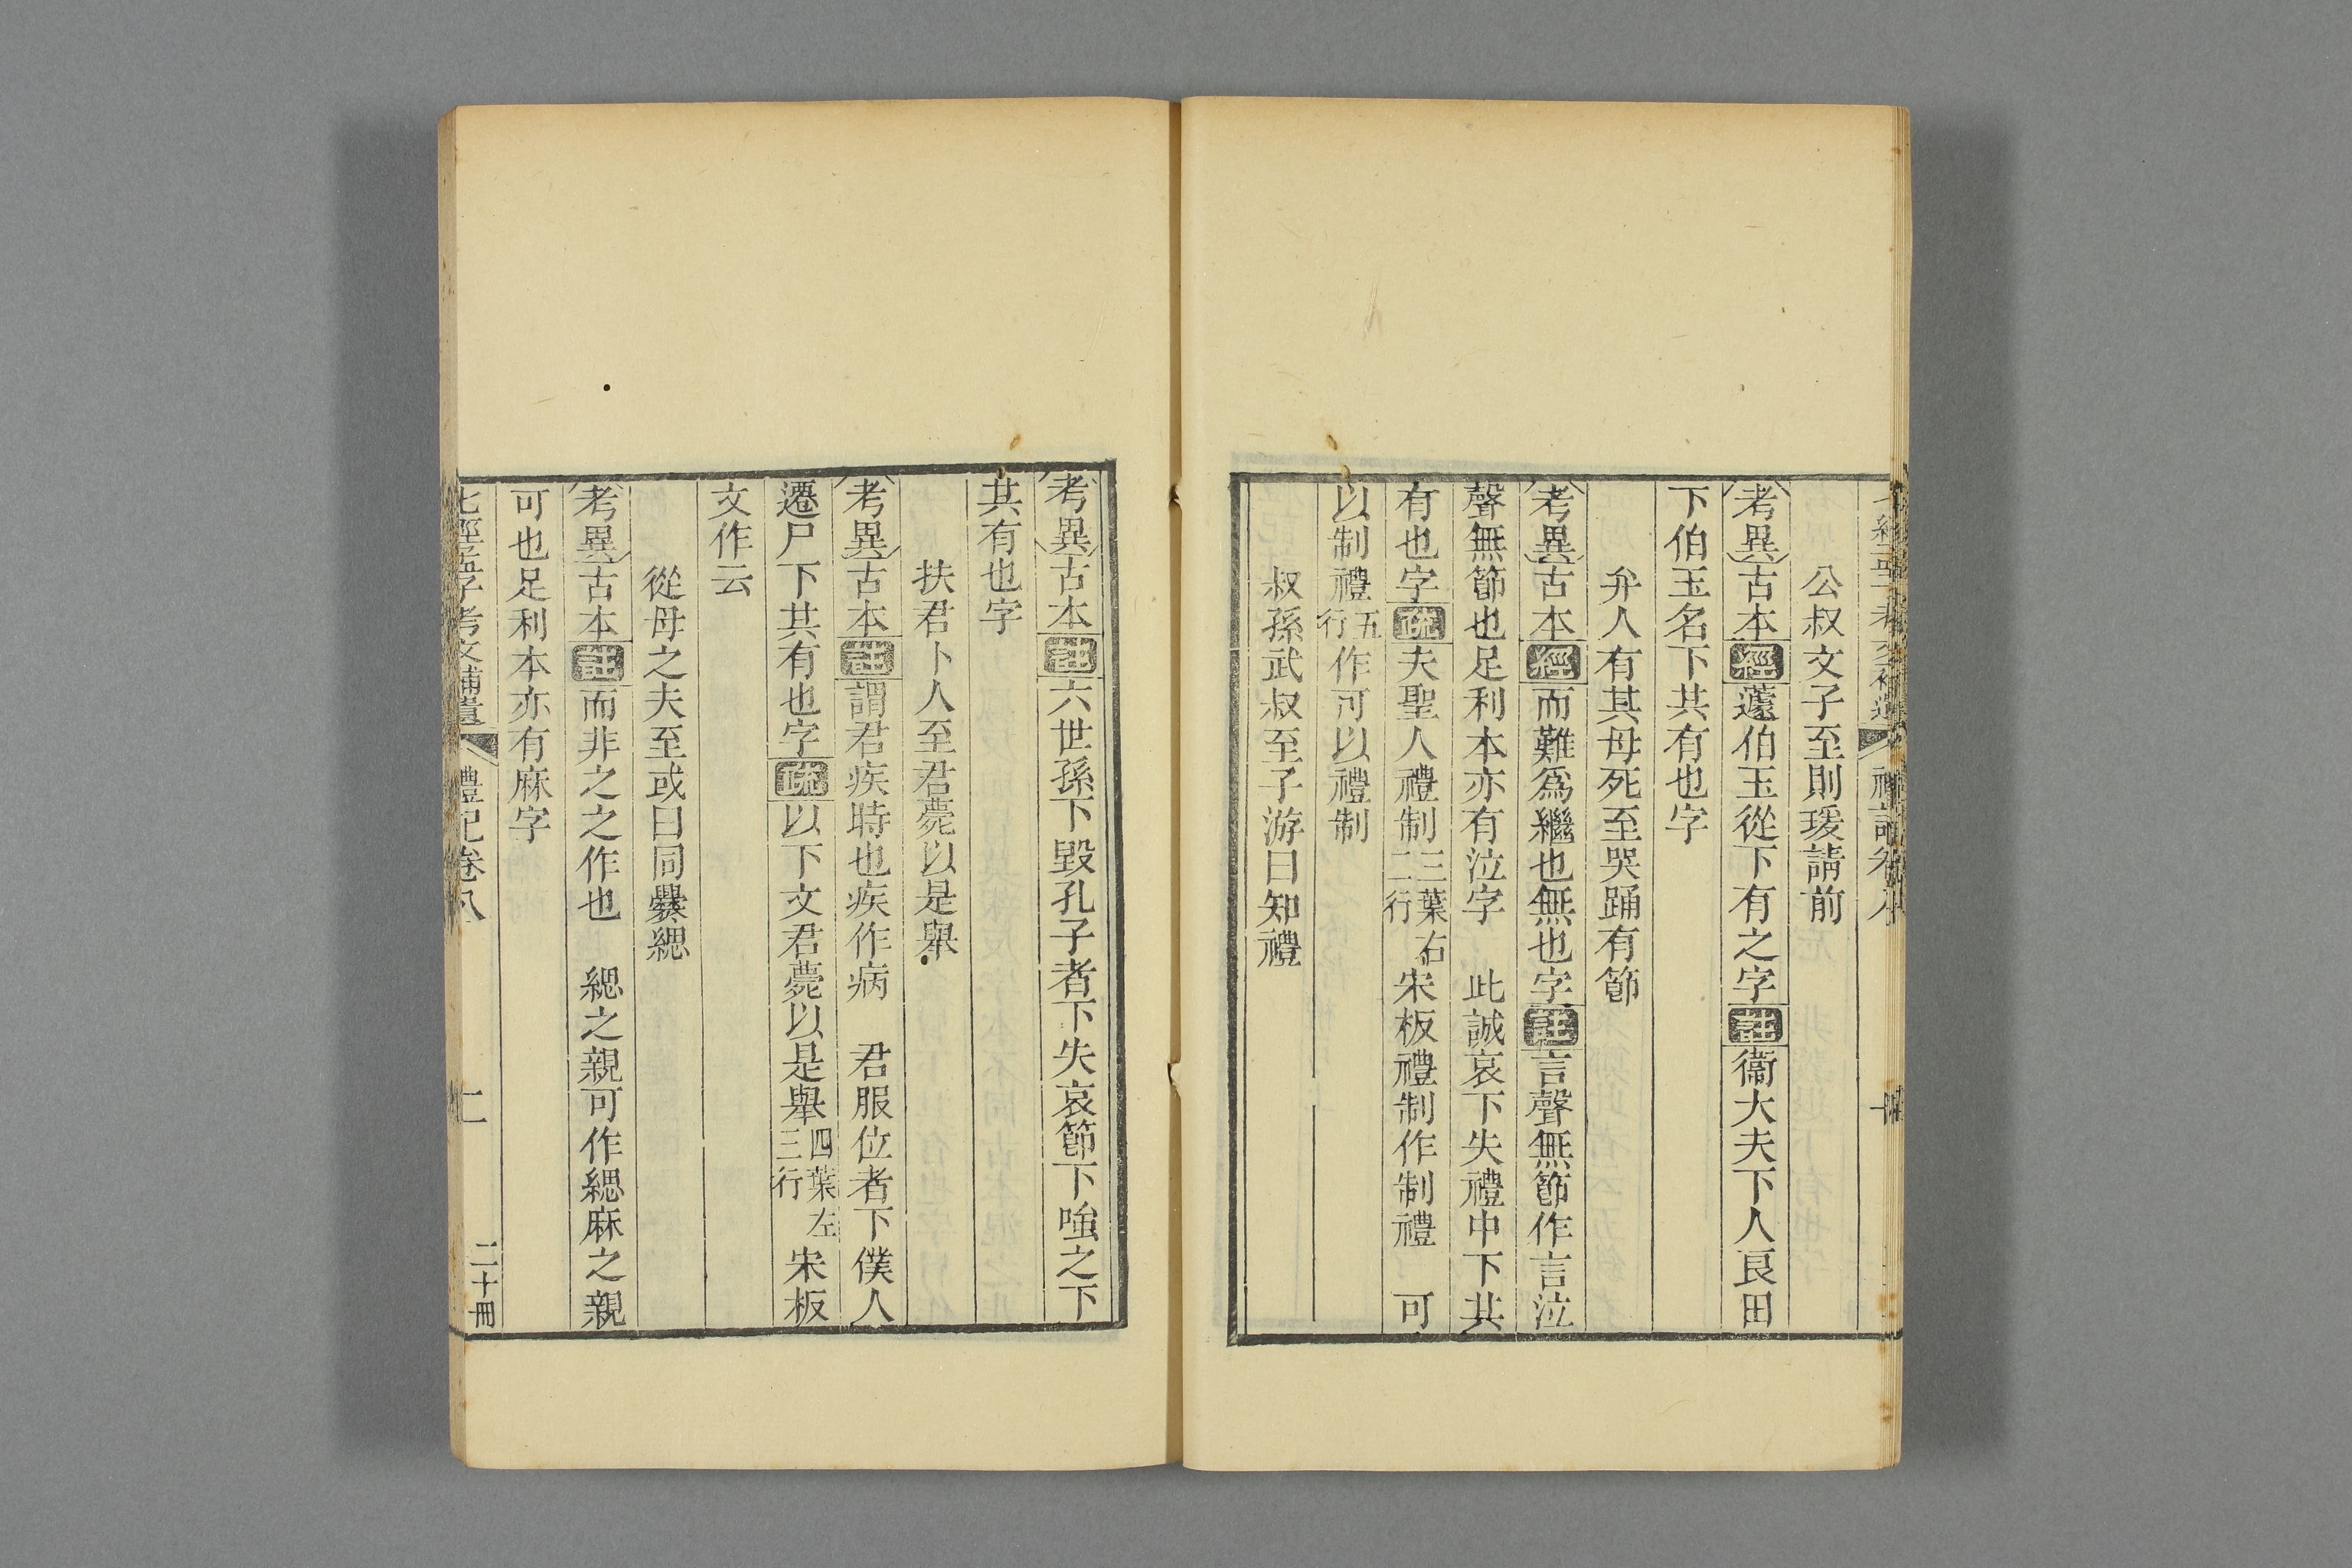 公叔文子至則瑗請前
考異古本經蘧伯玉從下有之字註衞大夫下人良田
下伯玉名下共有也字
弁人有其母死至哭踊有節
考異古本經而難爲繼也無也字註言聲無節作言泣
聲無節也足利本亦有泣字 此誠哀下失禮中下共
有也字疏夫聖人禮制三葉右二行宋板禮制作制禮 可
以制禮五行作可以禮制
叔孫武叔至子游曰知禮
考異古本註六世孫下毀孔子者下失哀節下嗤之下
共有也字
扶君卜人至君薨以是舉
考異古本註謂君疾時也疾作病 君服位者下僕人
遷尸下共有也字疏以下文君薨以是舉四葉左三行宋板
文作云
從母之夫至或曰同爨緦
考異古本註而非之之作也 緦之親可作緦麻之親
可也足利本亦有麻字
七經孟子考文補遺 禮記卷八 二 二十冊